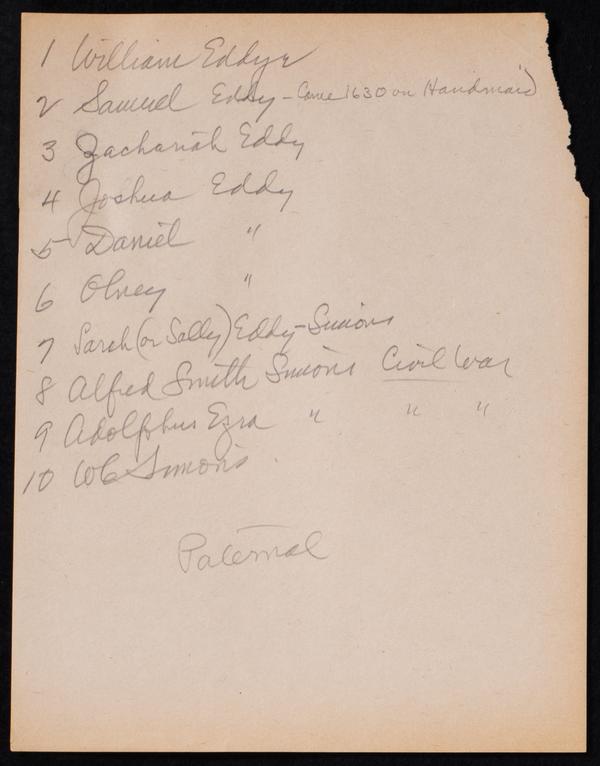 1 William Eddye
2 Samuel Eddy - Came 1630 on "Handmaid"
3 Zachariah Eddy
4 Joshua Eddy
5 Daniel "
6 Olney "
7 Sarah (or Sally) Eddy-Simons
8 Alfred Smith Simons Civil War
9 Adolphus Ezra " " "
10 WC Simons
Paternal